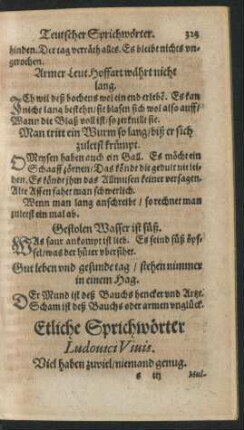 Teutscher Sprichwörter. 329
hinden. Der tag verräth alles. Es bleibt nichts vn-
gerochen.
Armer Leut Hoffart währt nicht
lang.
ICh wil deß bochens wol ein end erlebē. Es kan
nicht lang bestehn/ sie blasen sich wol also auff/
Wann die Blaß voll ist/ so zerknillt sie.
Man tritt ein Wurm so lang/ biß er sich
zuletst krümpt.
OMeysen haben auch ein Gall. Es möcht ein
Schaaff zörnen/ Das köndt die gedult nit lei-
den. Es köndt jhm das Allmusen keiner versagen.
Alte Affen fahet man schwerlich.
Wenn man lang anschreibt/ so rechnet man
zuletst ein mal ab.
Gestolen Wasser ist süß.
WAs saur ankompt ist lieb. Es seind süß öpf-
fel/ was der hüter vbersihet.
Gut leben vnd gesunde tag/ stehen nimmer
in einem Hag.
DEr Mund ist deß Bauchs hencker vnd Artzt.
Scham ist deß Bauchs oder armen vnglück.
Etliche Sprichwörter
Ludouici Viuis.
Viel haben zuviel/ niemand genug.